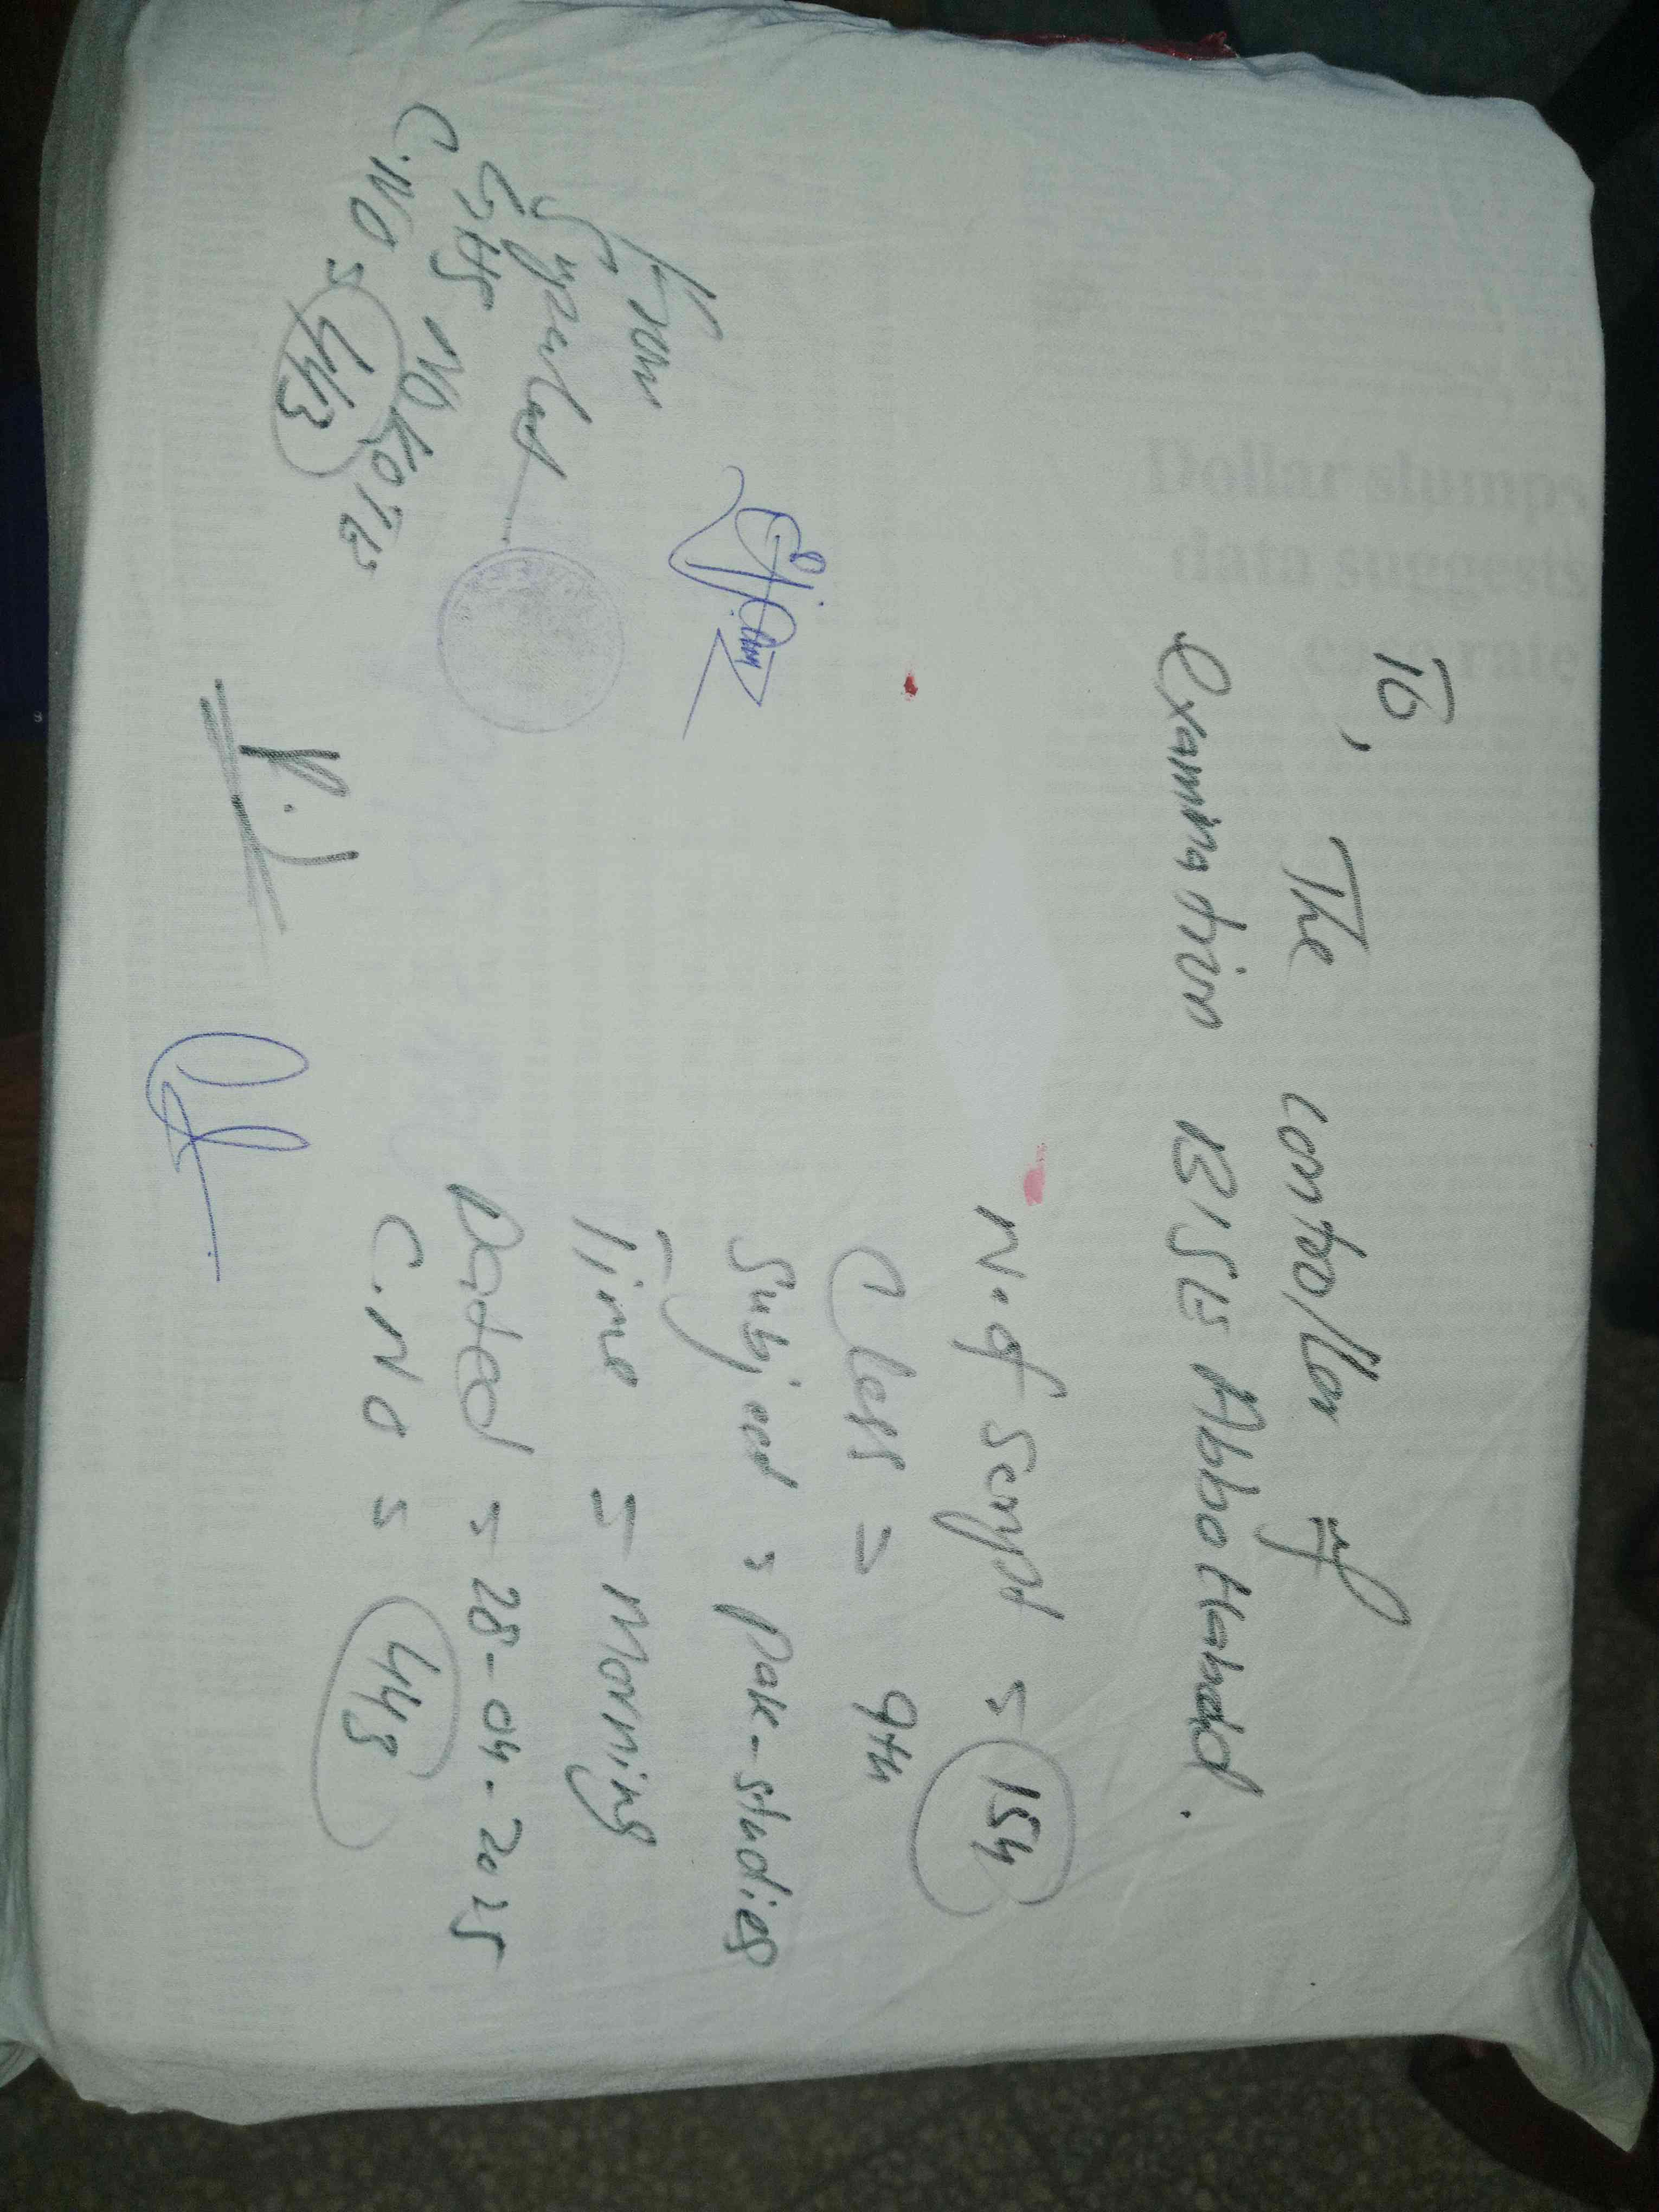 To, The controller of
Examination BISE Abbottabad.
N.of Script = 154
Class = 9th
Subject = Pak-studies
Time = Morning
Dated = 28-04-2025
C.NO = 443
From
GHS NOKOTE
C.NO = 443
Dollar slumps
data suggests